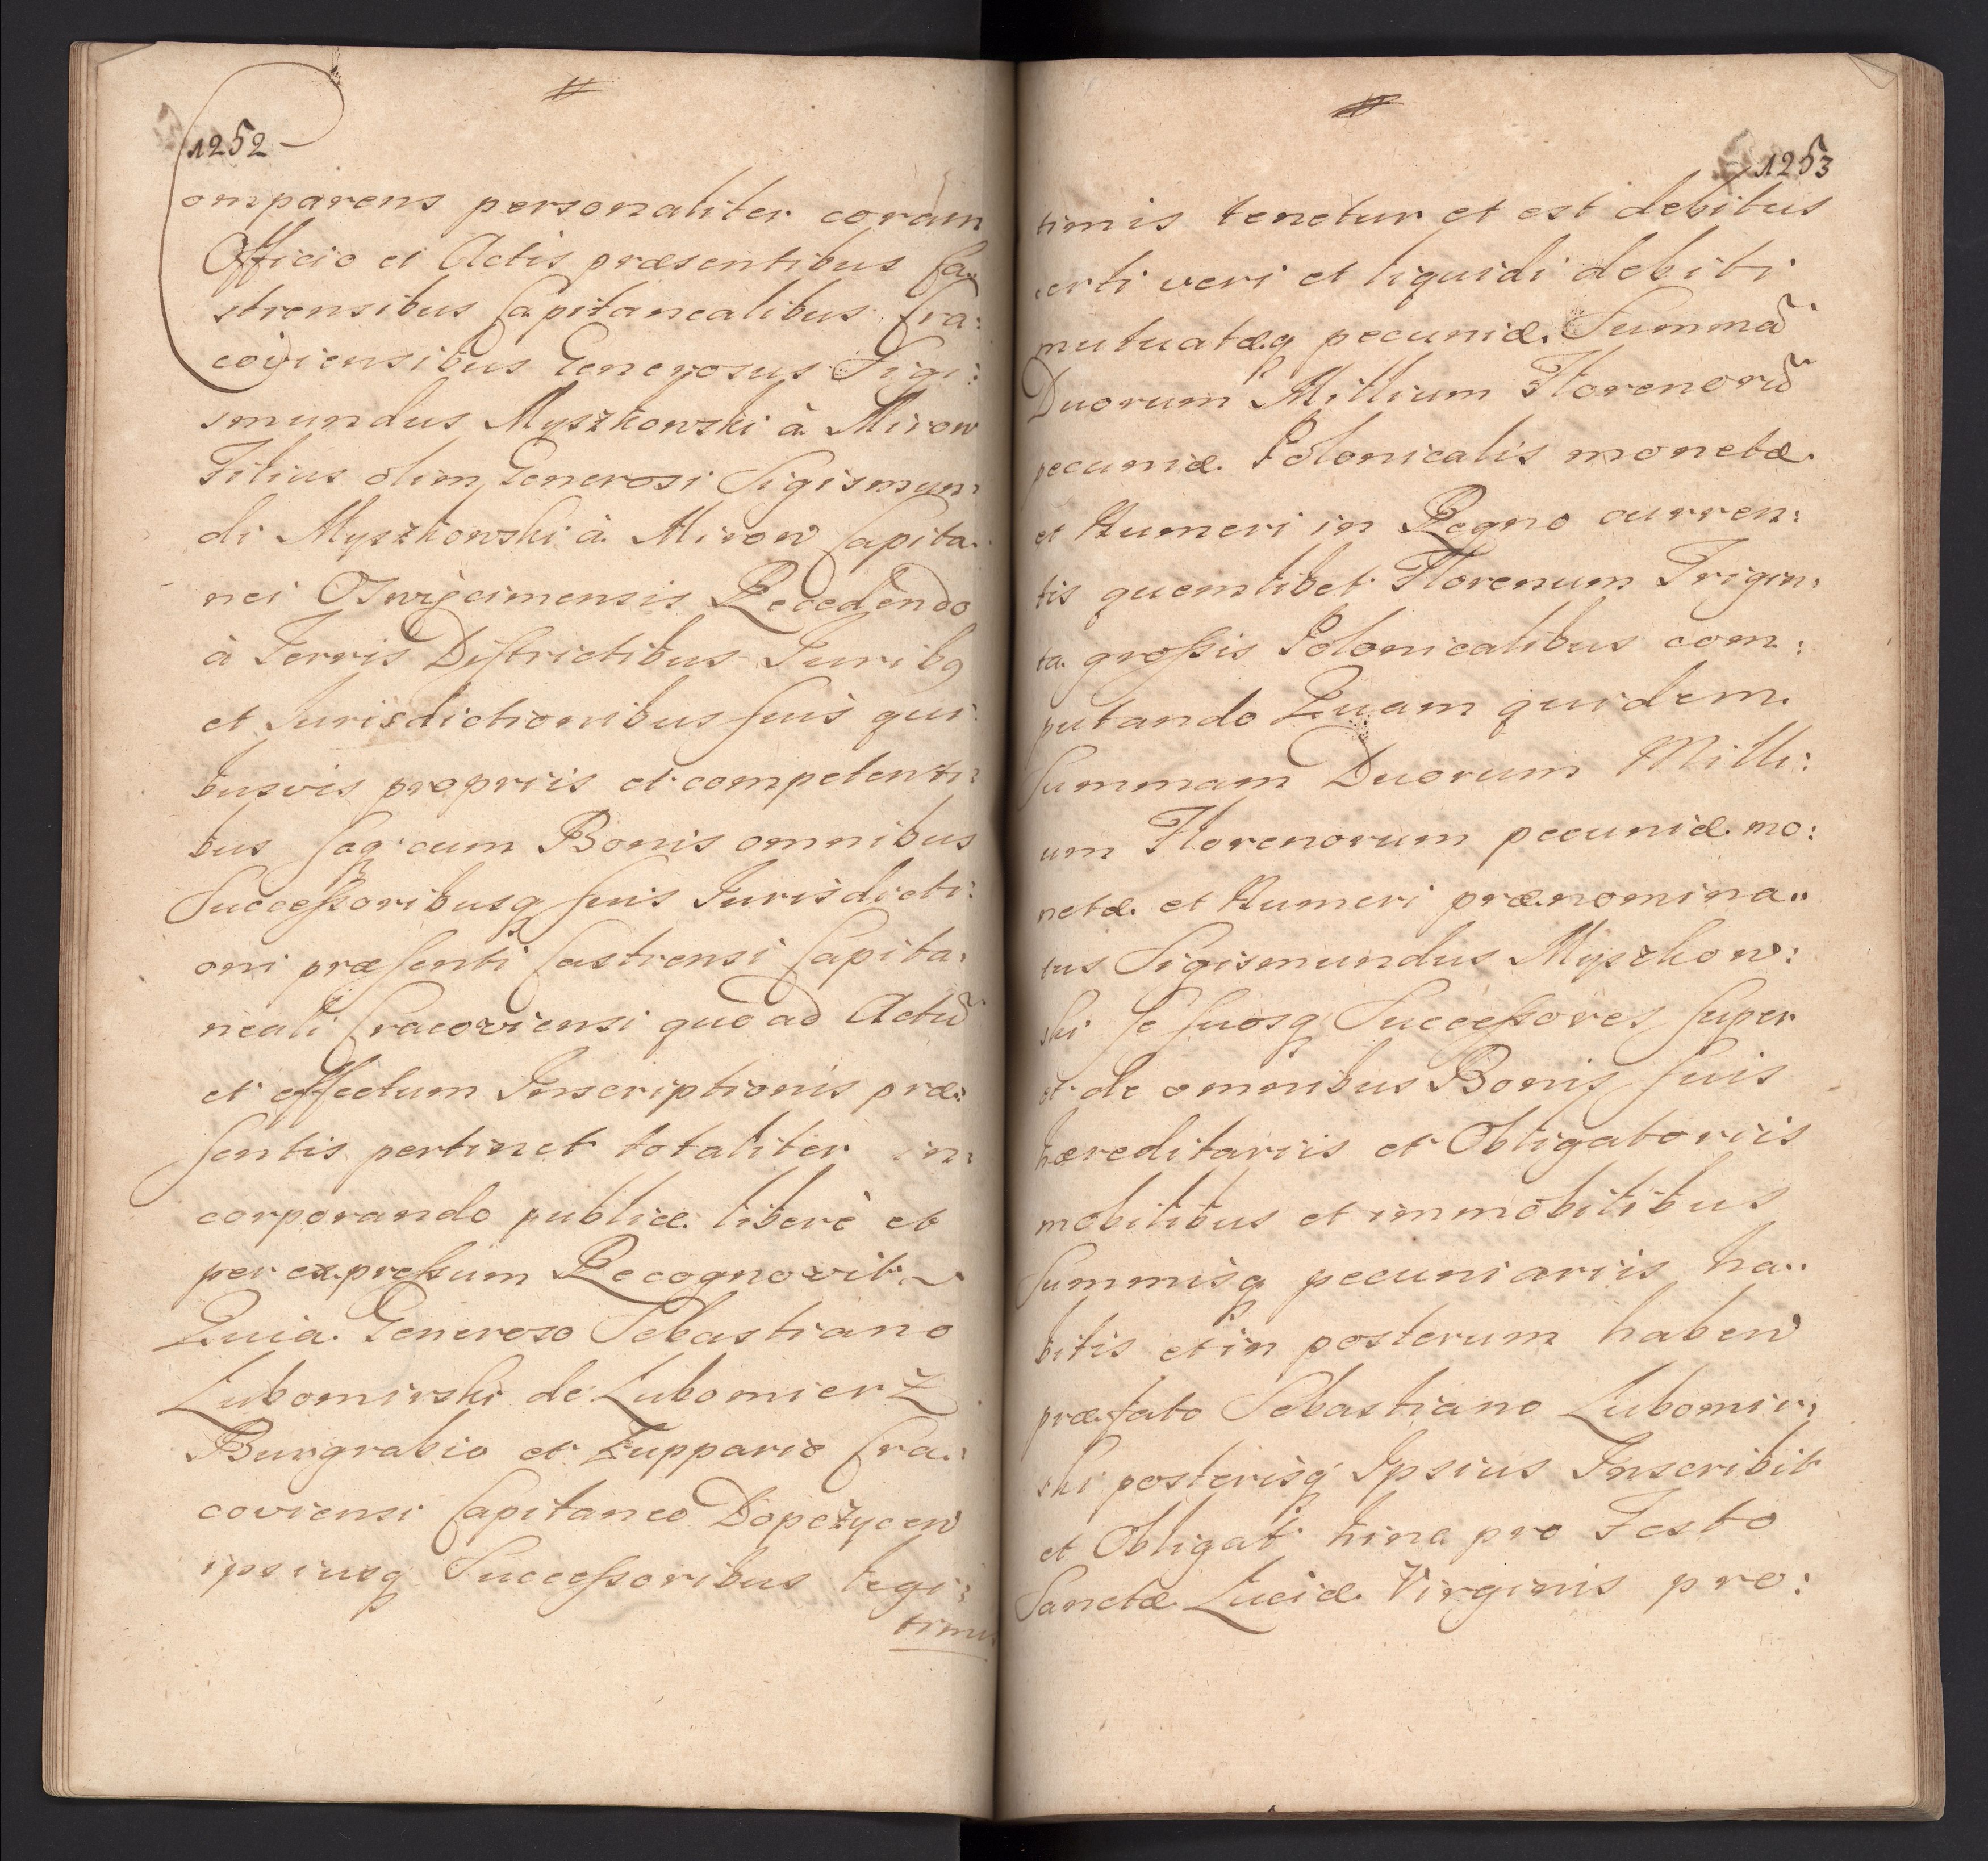 1252
Comparens personaliter coram
Officio et Actis præsentibus Ca:
strensibus Capitanealibus Cra:
coviensibus Generosus Sigi:
smundus Myszkowski à Mirow
Filius olim Generosi Sigismun:
di Myszkowski à Mirow Capita:
nei Oswięcimensis Recedendo
à Terris Districtibus Juribq
et Jurisdictionibus suis qui:
busvis propriis et competenti:
bus seq cum Bonis omnibus
Successoribusq suis Jurisdicti:
oni præsenti Castrensi Capita:
neali Cracoviensi quo ad Actũ
et effectum Inscriptionis præ:
sentis pertinet totaliter in:
corporando publicæ liberè et
per expressum Recognovit
Quia Generoso Sebastiano
Lubomirski de Lubomierz
Burgrabio et Zuppario Cra:
coviensi Capitaneo Dopczycen
ipsiusq Successoribus legi:
timis
1253
timis tenetur et est debitus
certi veri et liquidi debiti
mutuatæq pecuniæ Summã
Duorum Millium Florenorũ
pecuniæ Polonicalis monetæ
et Numeri in Regno curren:
tis quemlibet Florenum Trigin:
ta grossis Polonicalibus com:
putando Quam quidem
Summam Duorum Milli:
um Florenorum pecuniæ mo:
netæ et Numeri prænomina:
tus Sigismundus Myszkow:
ski se suosq Successores super
et de omnibus Bonis suis
hæreditariis et Obligatoriis
mobilibus et immobilibus
Summisq pecuniariis ha:
bitis et in posterum haben
præfato Sebastiano Lubomir:
ski posterisq Ipsius Inscribit
et Obligat hinc pro Festo
Sanctæ Luciæ Virginis pro: